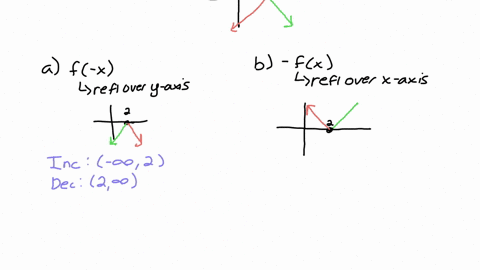 a) f(-x)
↳refl over y-axis
2
Inc: (-∞, 2)
Dec: (2, ∞)
b) - f(x)
↳refl over x-axis
2